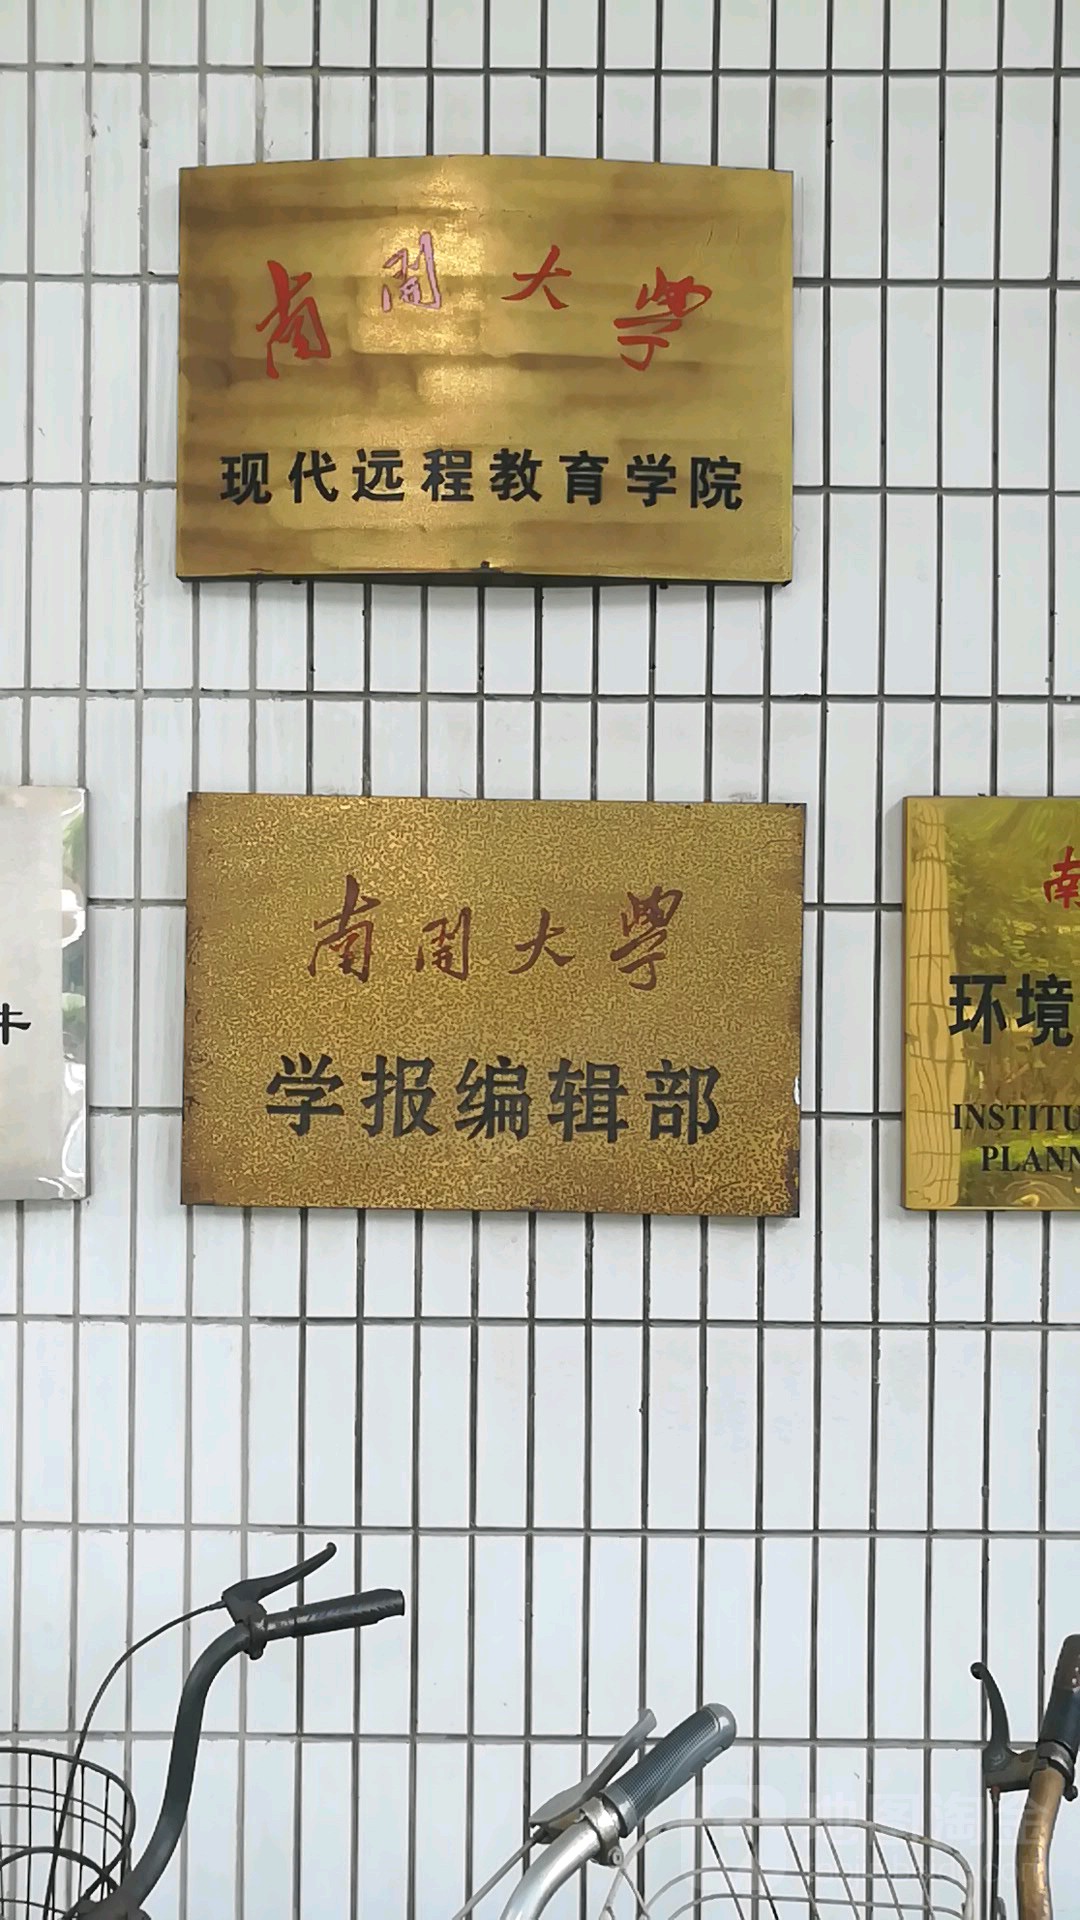 南開大學
现代远程教育学院
南開大學
学报编辑部
南
环境
INSTITU
PLANN
地图淘金